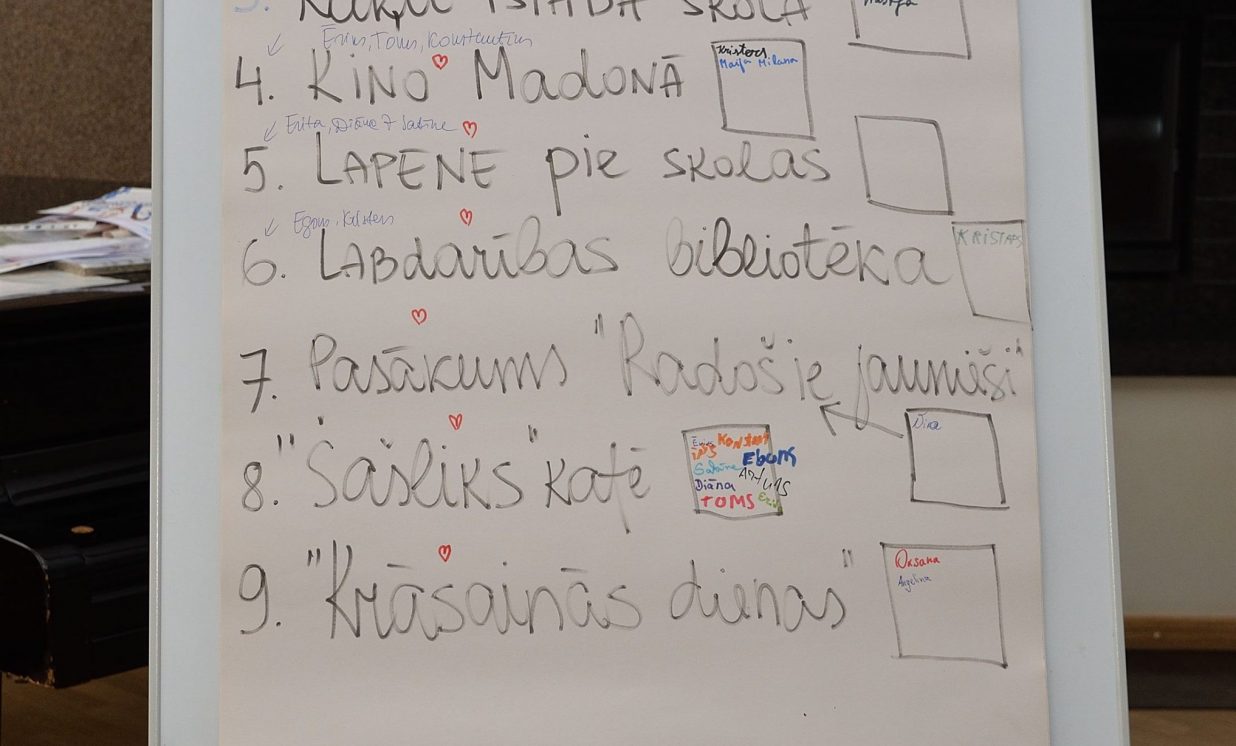 3. ISTABA SKOLĀ
Toms, Konstantīns
4. KINO MADONĀ
Kristers
Maija Milana
Erita, Diāna + Sabīne
5. LAPENE pie skolas
Egons, Kristers
6. LABdarības bibliotēka
KRISTAPS
7. Pasākums "Radošie jaunieši"
8. "Šašliks" kafē
KONSTANT
Sabīne
Diāna
ARTURS
TOMS
9. "Krāsainās dienas"
Oksana
Angelina